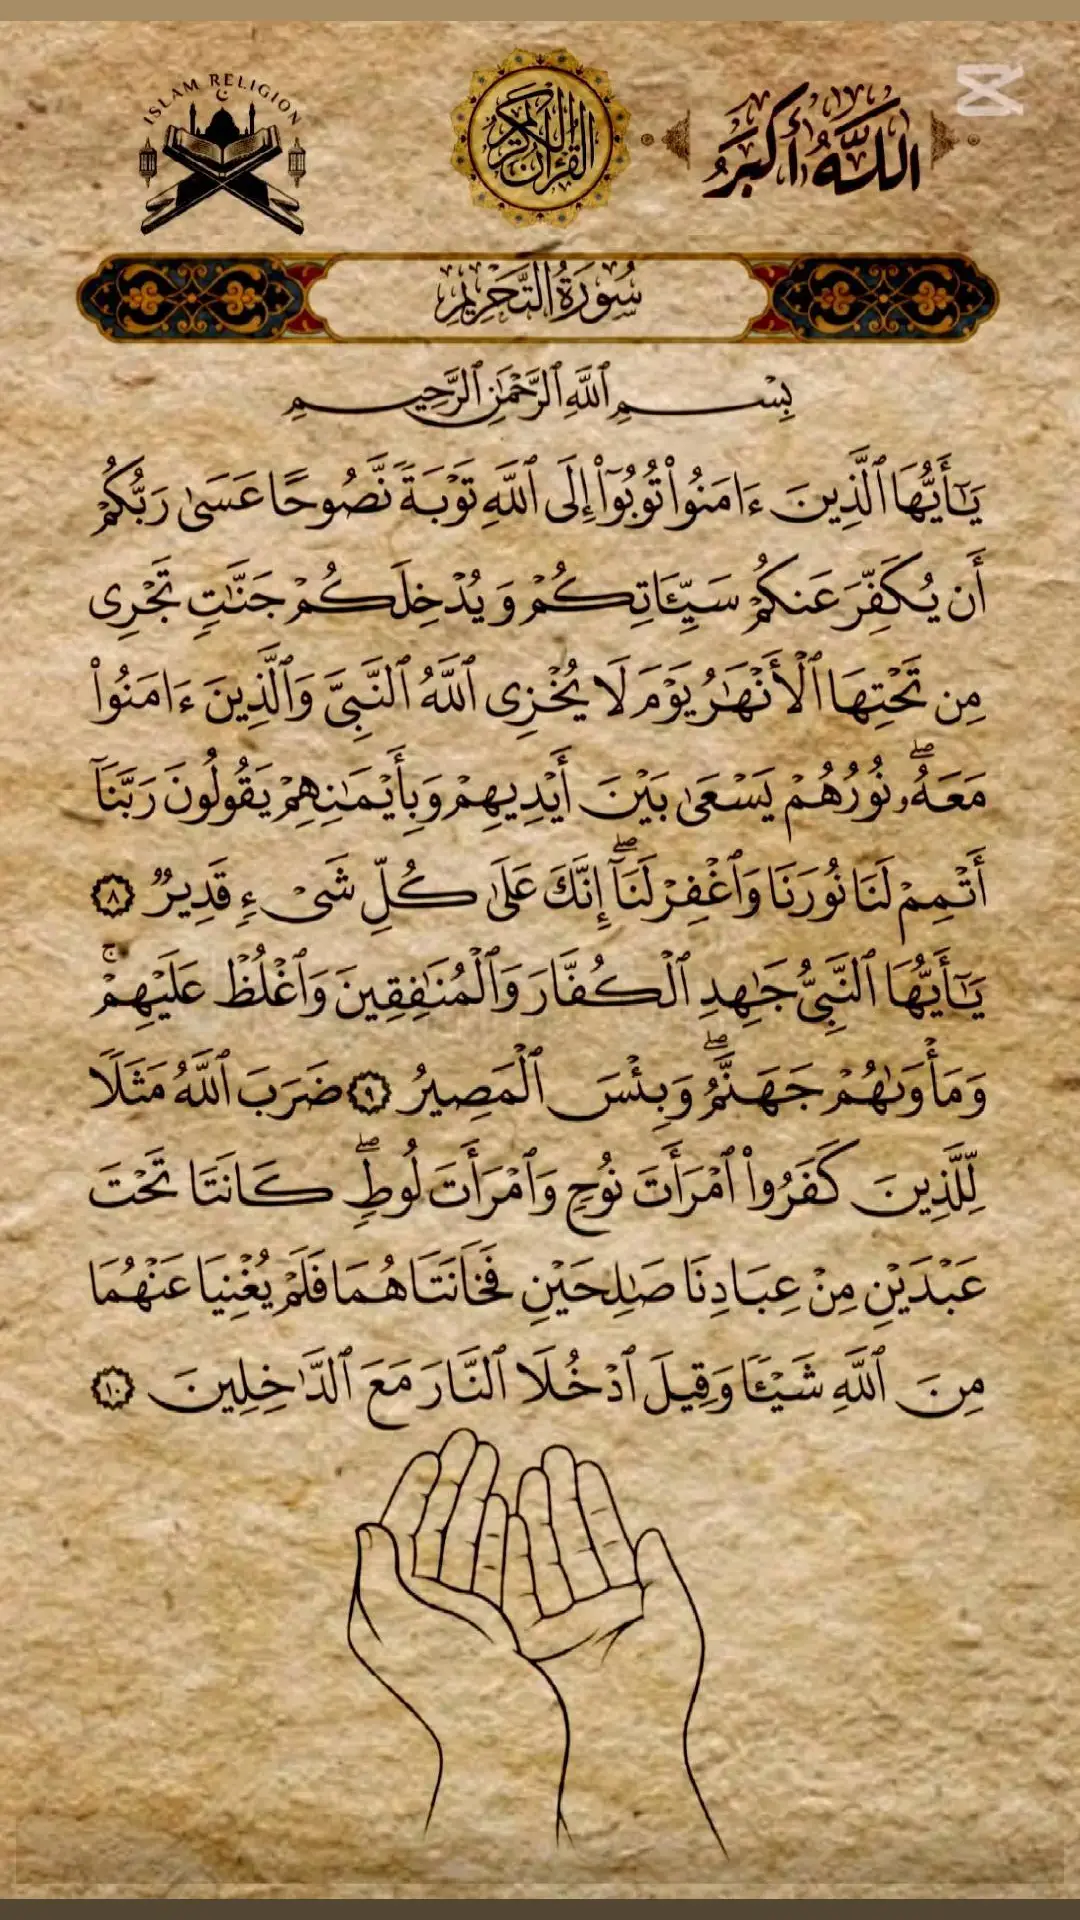 ISLAM RELIGION
القرآن الكريم
اللَّهُ أَكْبَرُ
سُورَةُ التَّحْرِيمِ
بِسْمِ ٱللَّهِ ٱلرَّحْمَٰنِ ٱلرَّحِيمِ
يَٰٓأَيُّهَا ٱلَّذِينَ ءَامَنُوا۟ تُوبُوٓا۟ إِلَى ٱللَّهِ تَوْبَةً نَّصُوحًا عَسَىٰ رَبُّكُمْ
أَن يُكَفِّرَ عَنكُمْ سَيِّـَٔاتِكُمْ وَيُدْخِلَكُمْ جَنَّٰتٍ تَجْرِى
مِن تَحْتِهَا ٱلْأَنْهَٰرُ يَوْمَ لَا يُخْزِى ٱللَّهُ ٱلنَّبِىَّ وَٱلَّذِينَ ءَامَنُوا۟
مَعَهُۥ ۖ نُورُهُمْ يَسْعَىٰ بَيْنَ أَيْدِيهِمْ وَبِأَيْمَٰنِهِمْ يَقُولُونَ رَبَّنَآ
أَتْمِمْ لَنَا نُورَنَا وَٱغْفِرْ لَنَآ ۖ إِنَّكَ عَلَىٰ كُلِّ شَىْءٍ قَدِيرٌ ٨
يَٰٓأَيُّهَا ٱلنَّبِىُّ جَٰهِدِ ٱلْكُفَّارَ وَٱلْمُنَٰفِقِينَ وَٱغْلُظْ عَلَيْهِمْ ۚ
وَمَأْوَىٰهُمْ جَهَنَّمُ ۖ وَبِئْسَ ٱلْمَصِيرُ ٩ ضَرَبَ ٱللَّهُ مَثَلًا
لِّلَّذِينَ كَفَرُوا۟ ٱمْرَأَتَ نُوحٍ وَٱمْرَأَتَ لُوطٍ ۖ كَانَتَا تَحْتَ
عَبْدَيْنِ مِنْ عِبَادِنَا صَٰلِحَيْنِ فَخَانَتَاهُمَا فَلَمْ يُغْنِيَا عَنْهُمَا
مِنَ ٱللَّهِ شَيْـًٔا وَقِيلَ ٱدْخُلَا ٱلنَّارَ مَعَ ٱلدَّٰخِلِينَ ١٠